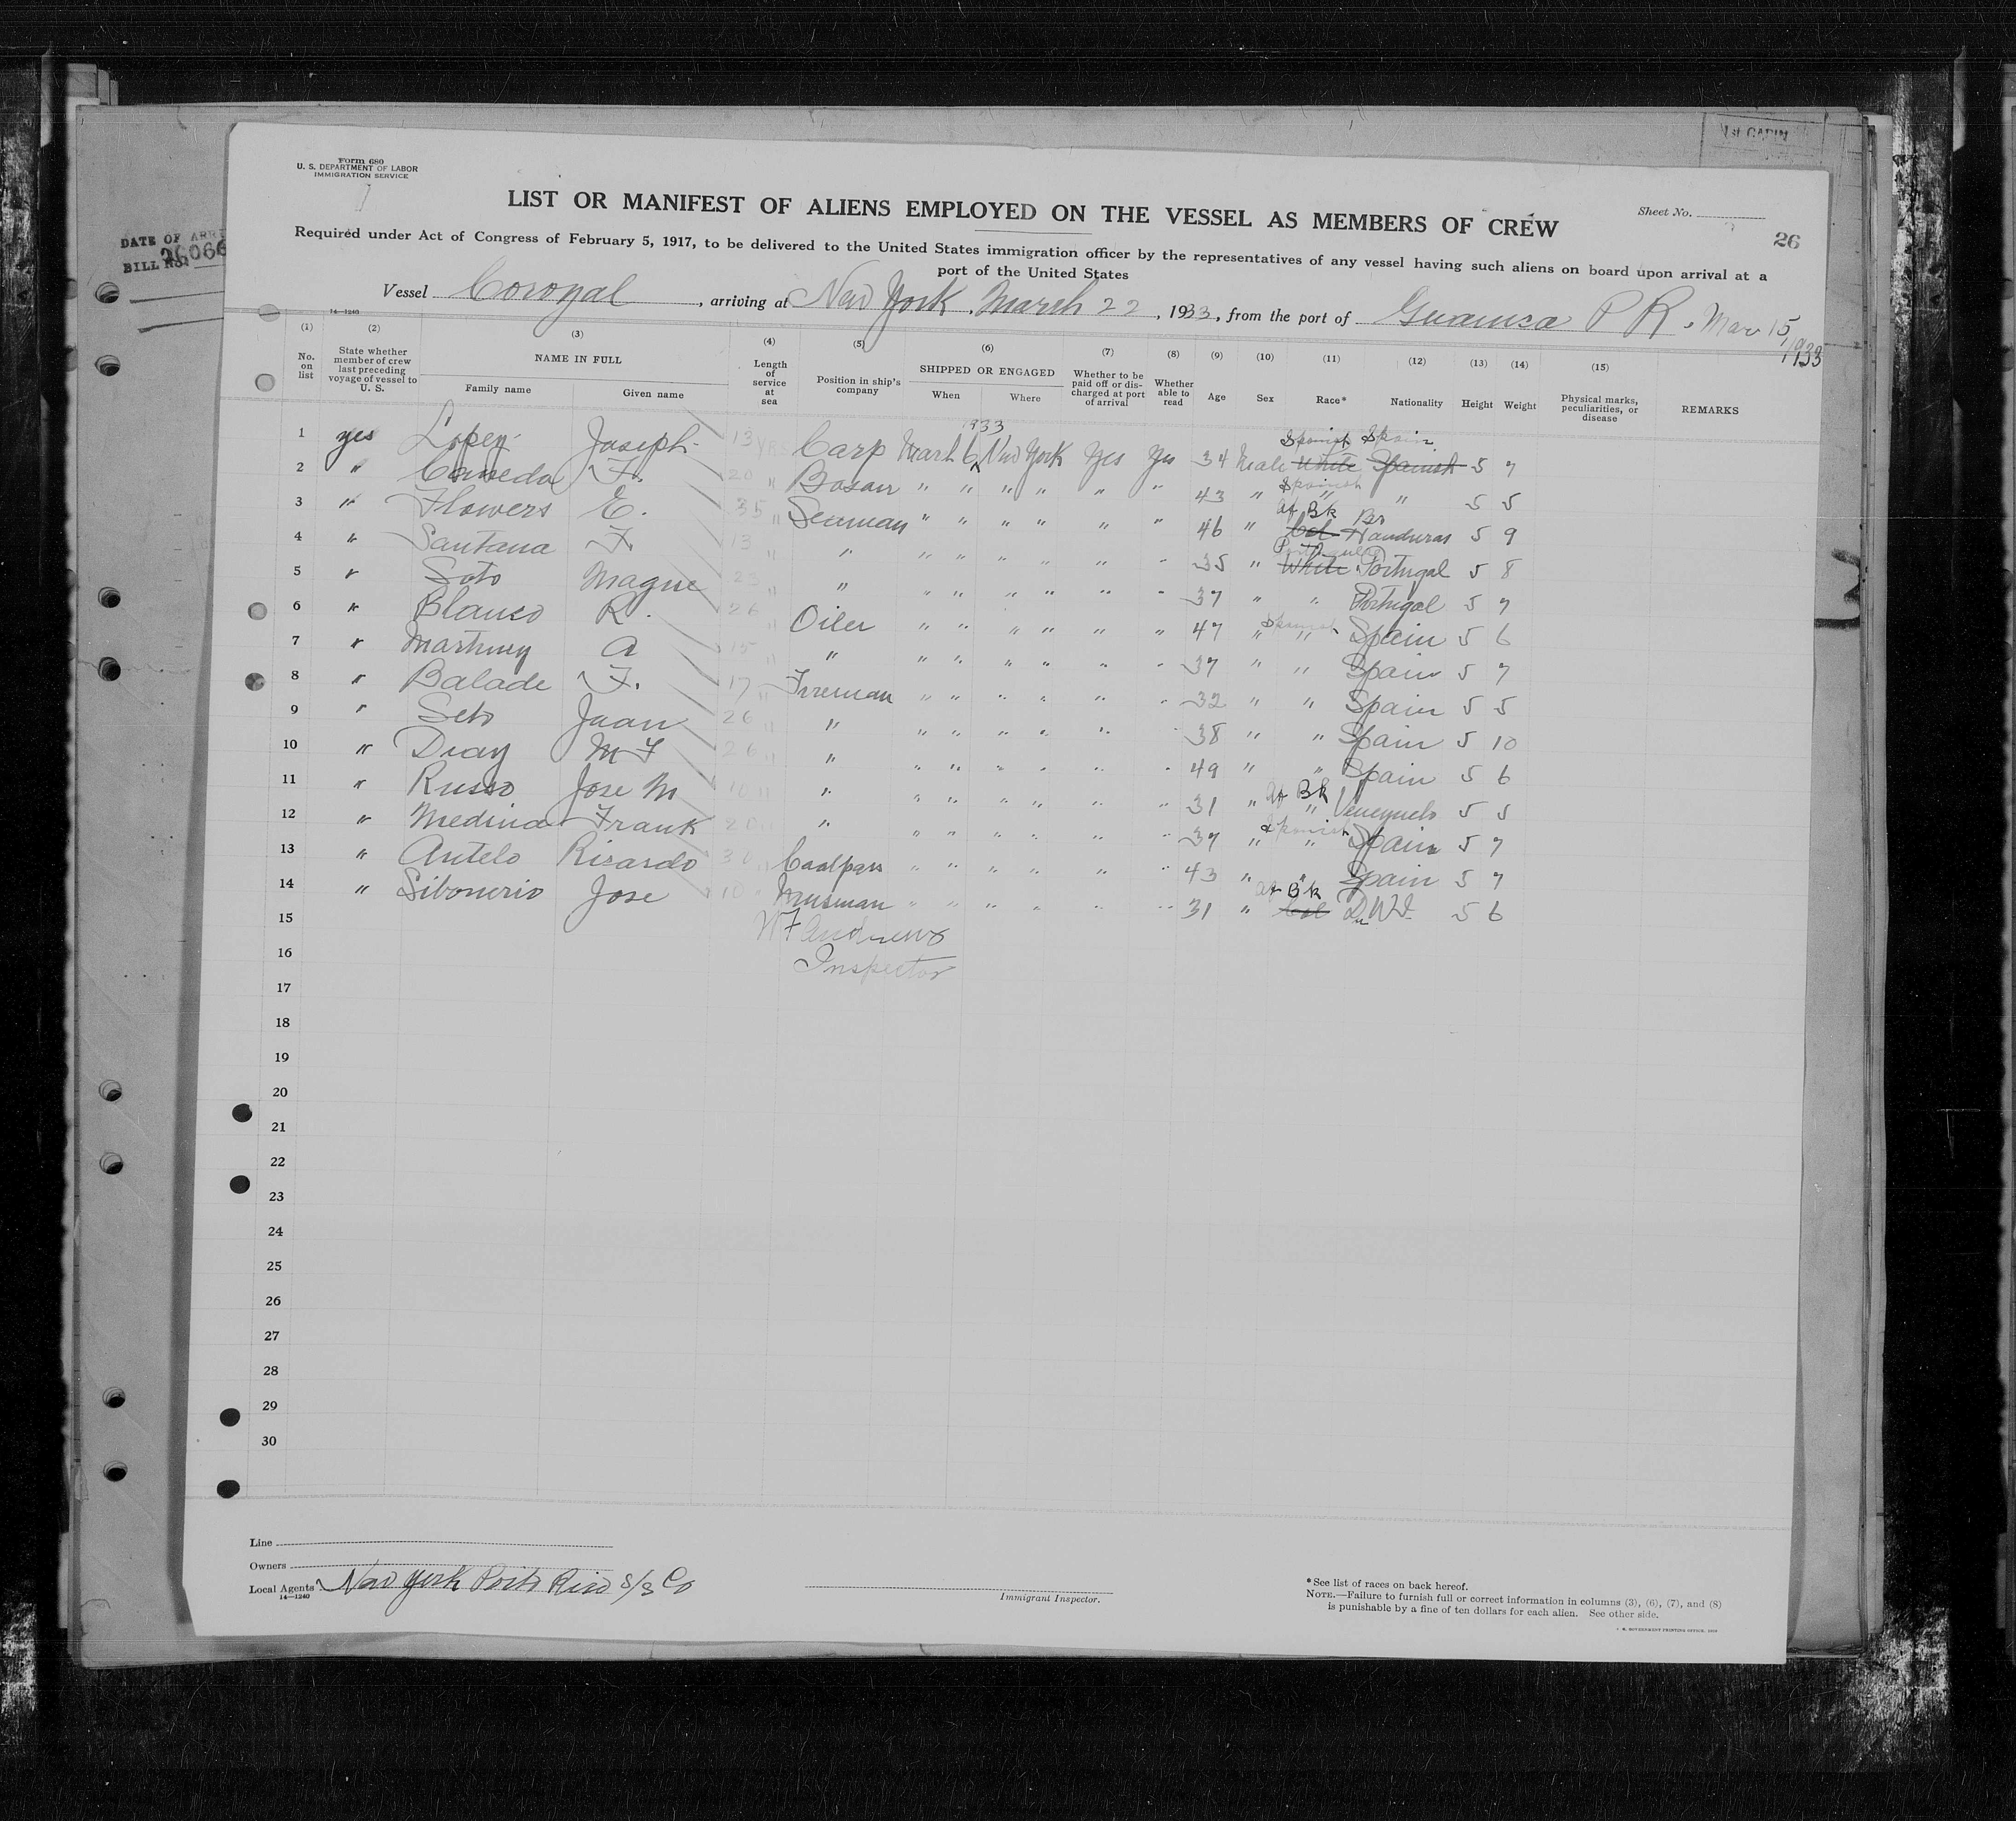 1st CABIN
Form 680
U. S. DEPARTMENT OF LABOR
IMMIGRATION SERVICE
LIST OR MANIFEST OF ALIENS EMPLOYED ON THE VESSEL AS MEMBERS OF CREW
Sheet No.
26
DATE OF ARRI
BILL NO.
26066
Required under Act of Congress of February 5, 1917, to be delivered to the United States immigration officer by the representatives of any vessel having such aliens on board upon arrival at a
port of the United States
Vessel Coroyal, arriving at New York, March 22, 1933, from the port of Guanica P R. Mar 15, 1933
14—1240
(1) (2) (3) (4) (5) (6) (7) (8) (9) (10) (11) (12) (13) (14) (15)
No. on list
State whether member of crew last preceding voyage of vessel to U. S.
NAME IN FULL
Family name
Given name
Length of service at sea
Position in ship's company
SHIPPED OR ENGAGED
When
Where
Whether to be paid off or discharged at port of arrival
Whether able to read
Age
Sex
Race*
Nationality
Height
Weight
Physical marks, peculiarities, or disease
REMARKS
1933
Spanish Spain
1 yes Lopez Joseph 13 yrs Carp March 6 New York Yes Yes 34 Male White Spanish 5 7
Spanish
2 " F. 20 " Bosun " " " " " " 43 " " " 5 5
Af Bk Br
3 " Flowers E. 35 " Seaman " " " " " " 46 " Col Honduras 5 9
4 " Santana F. 13 " " " " " " " " 35 " White Portugal 5 8
5 " Soto Magne 23 " " " " " " " " 37 " " Portugal 5 7
Spanish
6 " Blanco R. 26 " Oiler " " " " " " 47 " " Spain 5 6
7 " Martinez A 15 " " " " " " " " 37 " " Spain 5 7
8 " Balade F. 17 " Fireman " " " " " " 32 " " Spain 5 5
9 " Soto Juan 26 " " " " " " " " 38 " " Spain 5 10
10 " Diaz M F 26 " " " " " " " " 49 " " Spain 5 6
Af Bk
11 " Russo Jose M 10 " " " " " " " " 31 " " Venezuela 5 5
Spanish
12 " Medina Frank 20 " " " " " " " " 37 " " Spain 5 7
13 " Antelo Ricardo 30 " Coalpass " " " " " " 43 " " Spain 5 7
Af Bk
14 " Jose 10 " Messman " " " " " " 31 " Col Du W I. 5 6
15 W F Andrews
16 Inspector
17
18
19
20
21
22
23
24
25
26
27
28
29
30
Line
Owners
Local Agents New York Porto Rico S/S Co
14—1240
Immigrant Inspector.
*See list of races on back hereof.
NOTE.—Failure to furnish full or correct information in columns (3), (6), (7), and (8)
is punishable by a fine of ten dollars for each alien. See other side.